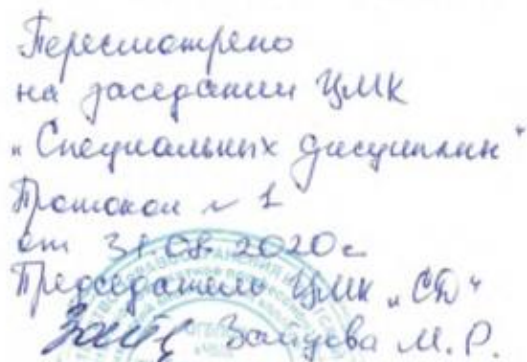 Пересмотрено
на заседании ЦМК
„Специальных дисциплин“
Протокол № 1
от 31.08.2020г
Председатель ЦМК „СД“
Зайцева М.Р.